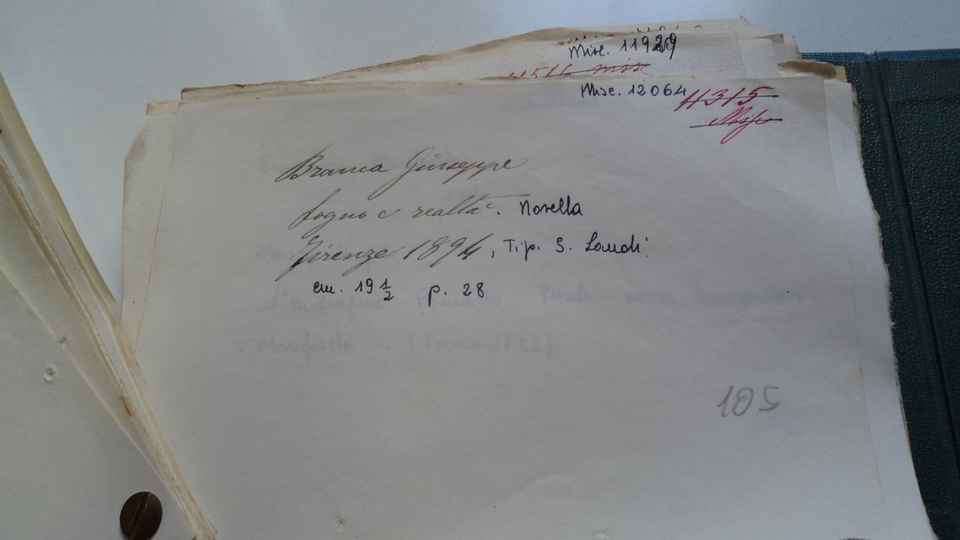 Misc. 11929
Misc. 12064
11315
Branca Giuseppe
Sogno e realtà. Novella
Firenze 1894, Tip. S. Landi
cm. 19 1/2 p. 28
105